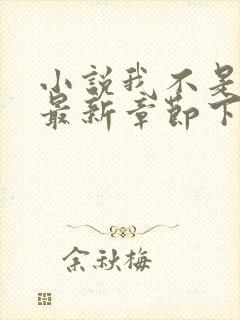 小说我不是
最新章节下
余秋梅